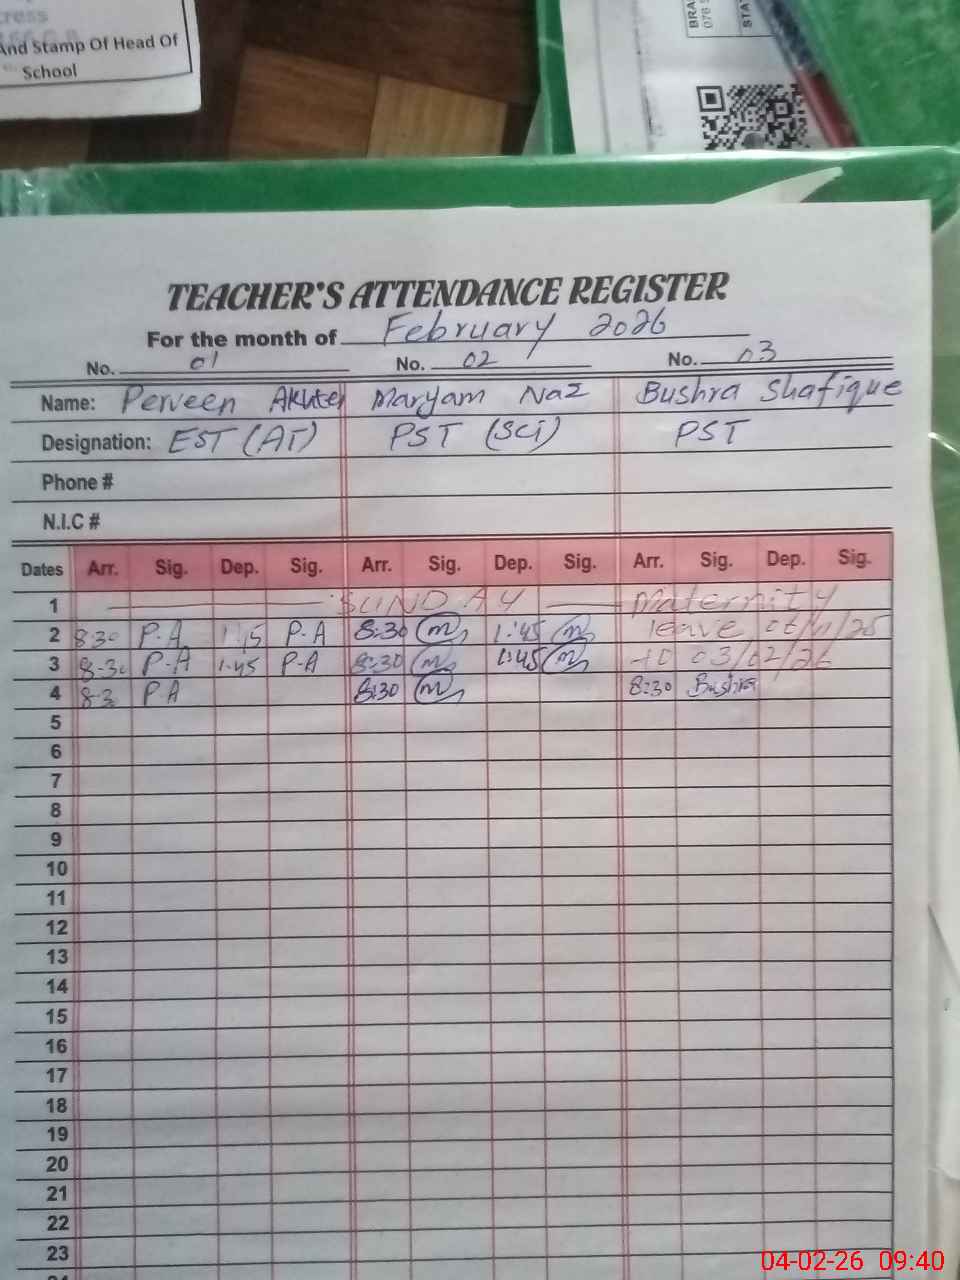 cress
And Stamp Of Head Of
School
BRA
076 5
STA
TEACHER'S ATTENDANCE REGISTER
For the month of February 2026
No. 01 No. 02 No. 03
Name: Perveen Akhter Maryam Naz Bushra Shafique
Designation: EST (AT) PST (Sci) PST
Phone #
N.I.C #
Dates Arr. Sig. Dep. Sig. Arr. Sig. Dep. Sig. Arr. Sig. Dep. Sig.
1 SUNDAY Maternity
2 8:30 P-A P-A 8:30 m 1:45 m leave 06/11/25
3 8:30 P-A 1:45 P-A 8:30 m 1:45 m to 03/02/26
4 8:3 P A 8:30 m 8:30 Bushra
5
6
7
8
9
10
11
12
13
14
15
16
17
18
19
20
21
22
23
04-02-26 09:40